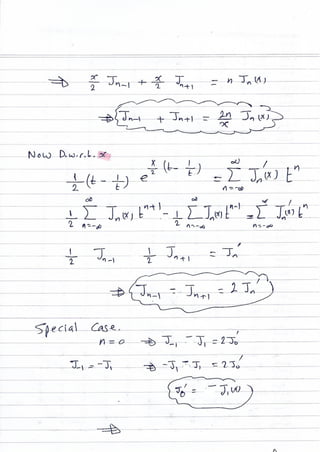 ⇒ x/2 J_{n-1} + x/2 J_{n+1} = n J_n(x)
⇒ J_{n-1} + J_{n+1} = 2n/x J_n(x)
Now D.w.r.t. x
1/2 (t - 1/t) e^{x/2 (t - 1/t)} = ∑_{n=-∞}^{∞} J_n'(x) t^n
1/2 ∑_{n=-∞}^{∞} J_n(x) t^{n+1} - 1/2 ∑_{n=-∞}^{∞} J_n(x) t^{n-1} = ∑_{n=-∞}^{∞} J_n'(x) t^n
1/2 J_{n-1} 1/2 J_{n+1} = J_n'
⇒ J_{n-1} - J_{n+1} = 2 J_n'
Special Case.
n=0 ⇒ J_{-1} - J_1 = 2J_0'
J_{-1} = -J_1 ⇒ -J_1 - J_1 = 2J_0'
J_0' = -J_1(x)
⇒